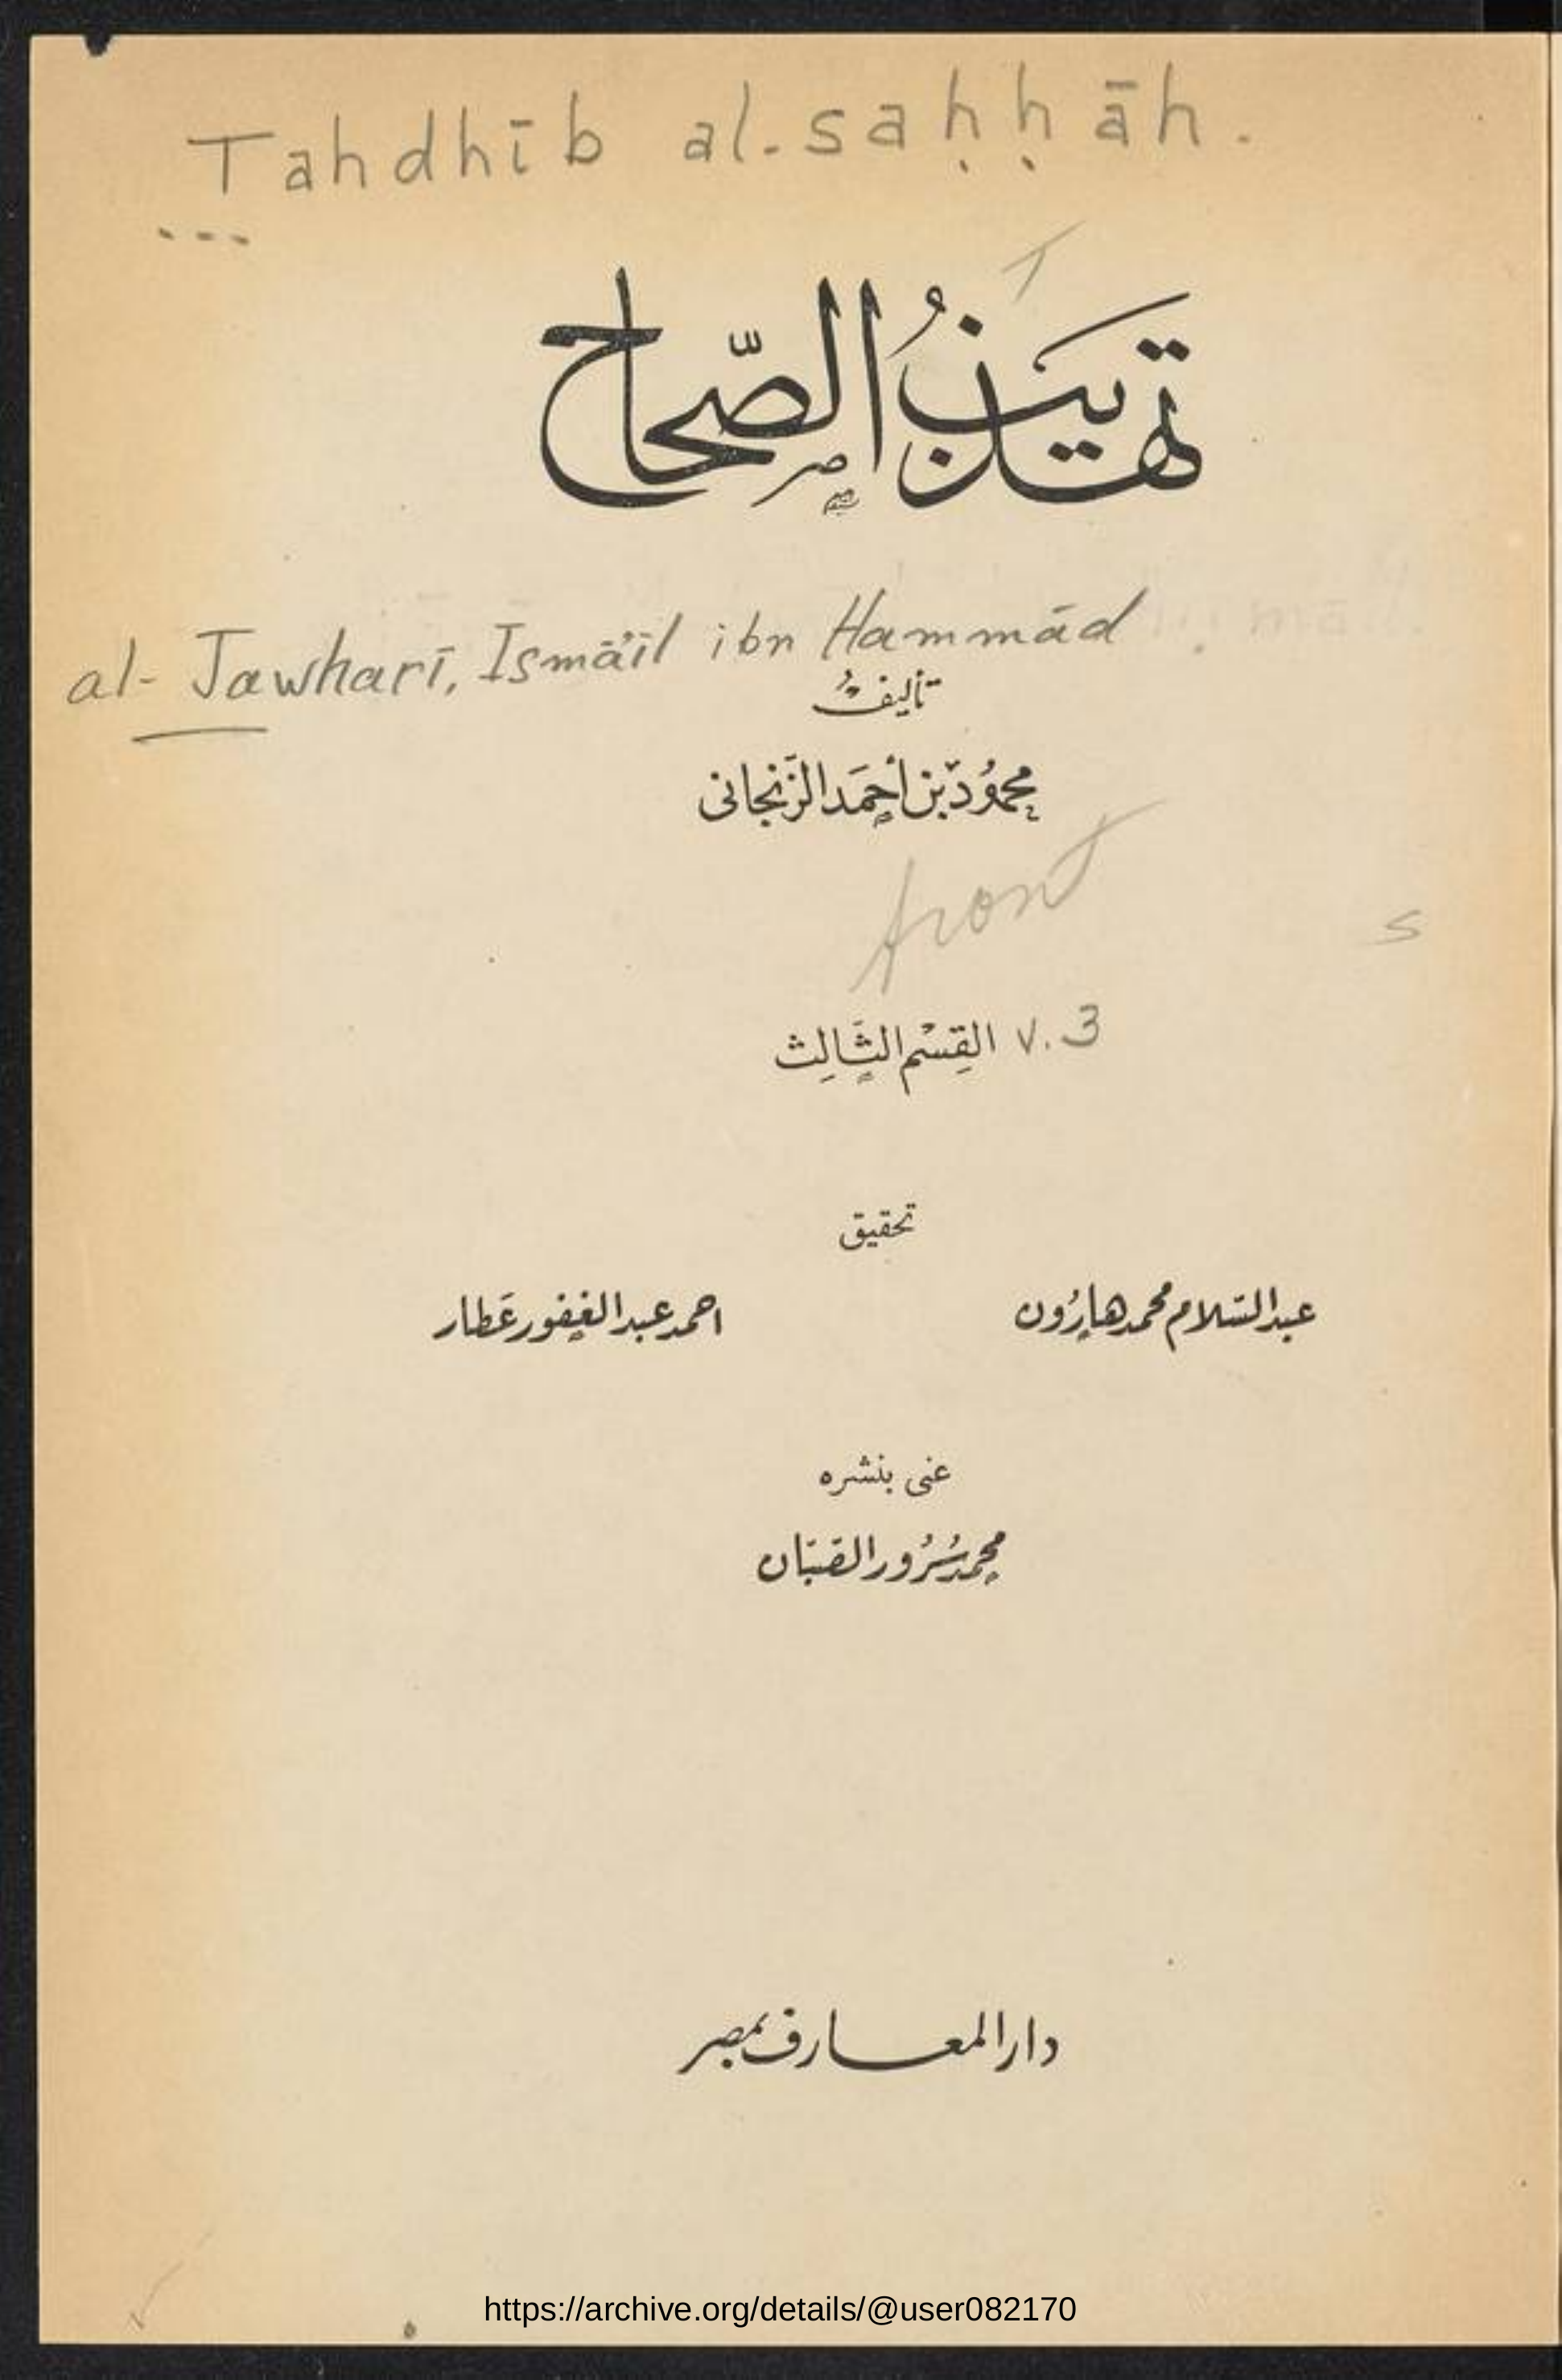 Tahdhīb al-saḥḥāh.
تهذيبُ الصّحاح
al-Jawharī, Ismā'īl ibn Hammād
تأليفُ
محمُود بن أحمَد الزَّنجانى
front
s
القِسْم الثَّالِث v. 3
تحقيق
عبد السّلام محمد هارُون
احمد عبد الغفور عَطار
عنى بنشره
محمد سُرُور الصّبّان
دار المعارف بمصر
https://archive.org/details/@user082170